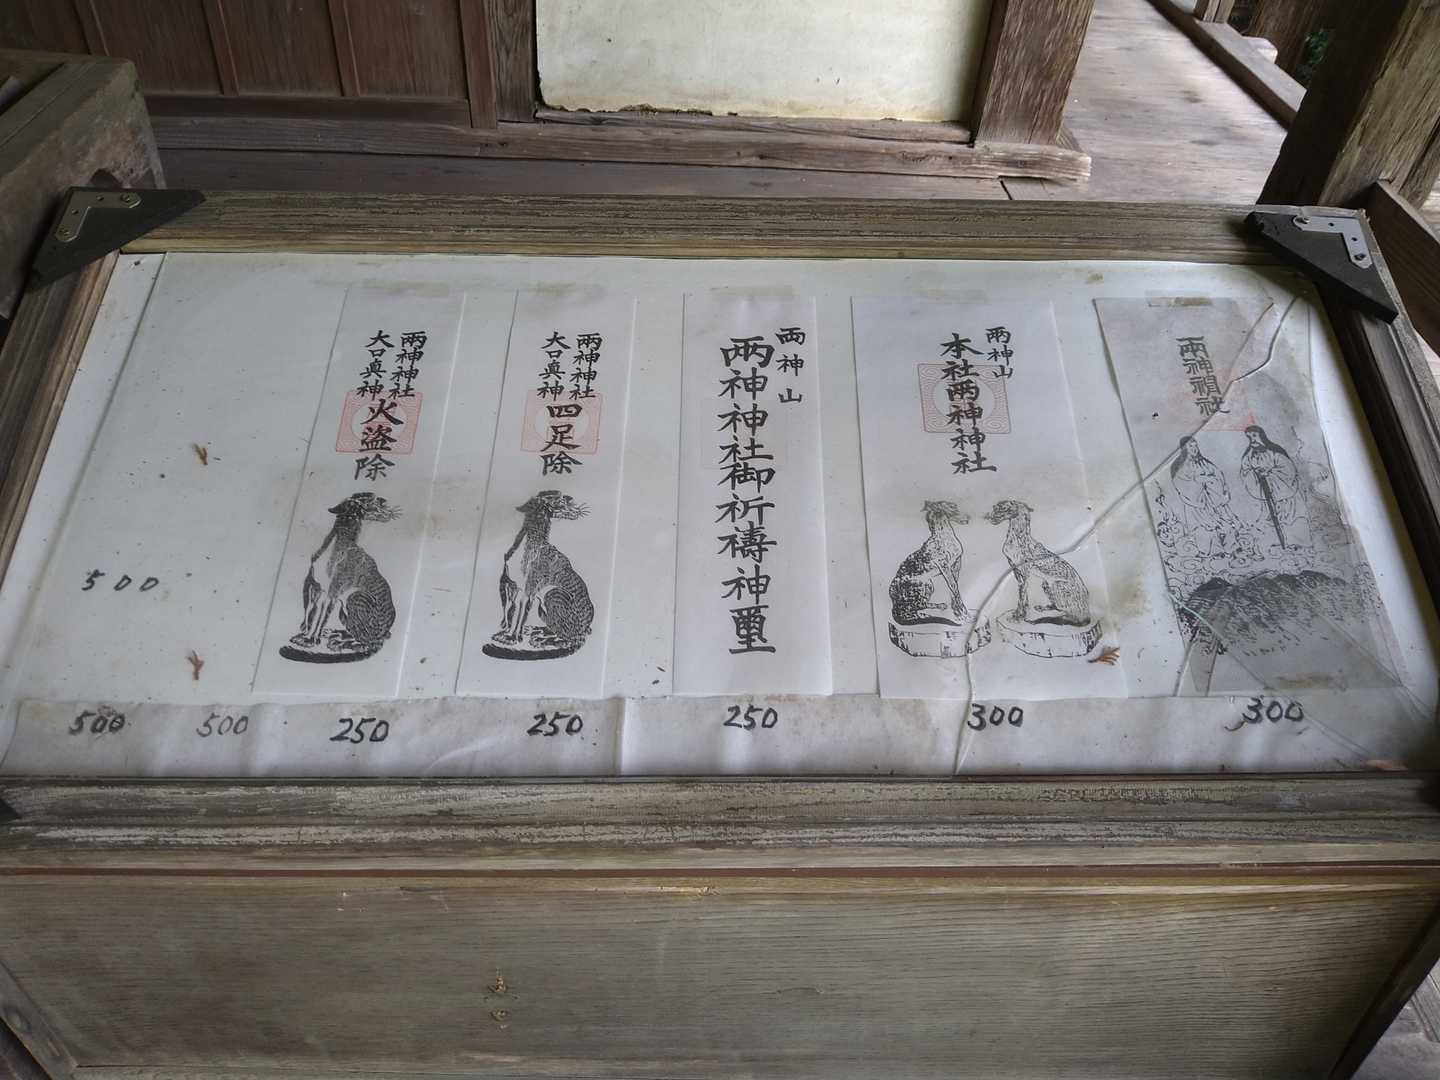 両神神社
大口眞神
火盗除
両神神社
大口眞神
四足除
両神山
両神神社御祈禱神璽
両神山
本社両神神社
500
500
500
250
250
250
300
300